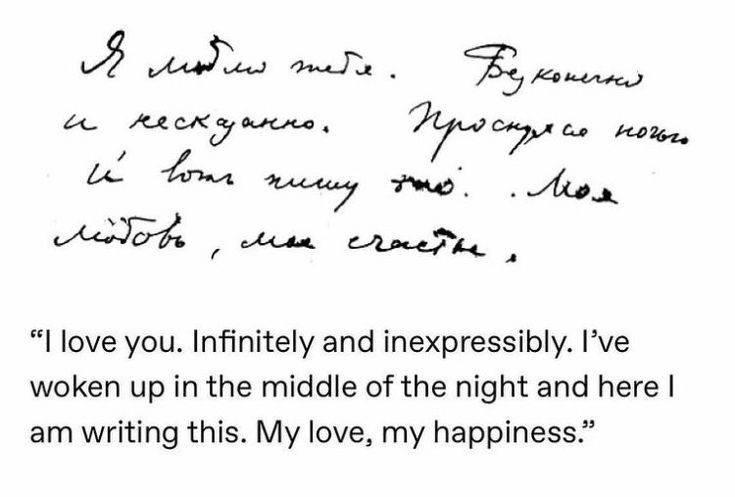 Я люблю тебя. Бесконечно
и несказанно. Проснулся ночью
и вот пишу это. Моя
любовь, мое счастье.
“I love you. Infinitely and inexpressibly. I’ve
woken up in the middle of the night and here I
am writing this. My love, my happiness.”